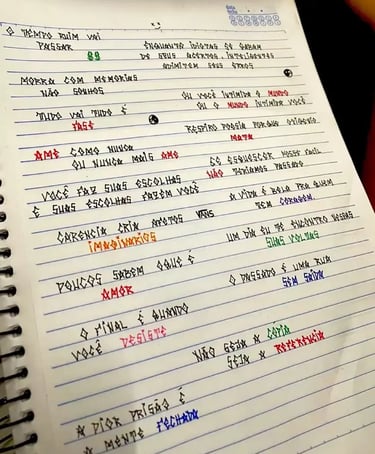 O TEMPO RUIM VAI
PASSAR
ENQUANTO IDIOTAS SE GABAM
DE SEUS ACERTOS, INTELIGENTES
ADMITEM SEUS ERROS
MORRA COM MEMORIAS
NÃO SONHOS
OU VOCÊ INTIMIDA O MUNDO
OU O MUNDO INTIMIDA VOCÊ
TUDO VAI TUDO É
FASE
RESPIRO POESIA PORQUE OXIGENIO
MATA
AME COMO NUNCA
OU NUNCA MAIS AME
SE ESQUECER FOSSE FACIL
NÃO TERIAMOS PASSADO
VOCÊ FAZ SUAS ESCOLHAS
E SUAS ESCOLHAS FAZEM VOCÊ
A VIDA É BELA PRA QUEM
TEM CORAGEM
CARENCIA CRIA AMORES
IMAGINARIOS
UM DIA EU TE ENCONTRO NESSAS
SUAS VOLTAS
POUCOS SABEM OQUE É
AMOR
O PASSADO É UMA RUA
SEM SAIDA
O FINAL É QUANDO
VOCÊ DESISTE
NÃO SEJA A COPIA
SEJA A REFERENCIA
A PIOR PRISÃO É
A MENTE FECHADA